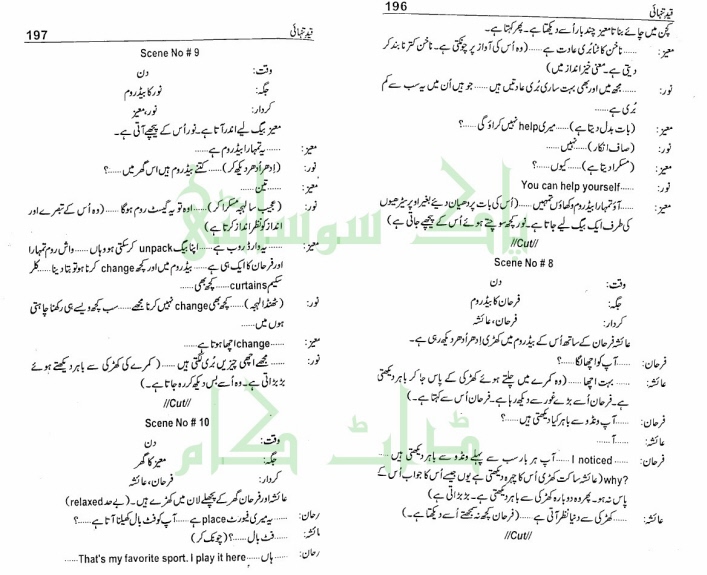 196
قیدِ تنہائی
کچن میں چائے بناتا معیز چند بار اُسے دیکھتا ہے۔ پھر کہتا ہے۔
معیز: ......ناخن کاٹنا بُری عادت ہے......(وہ اُس کی آواز پر چونکتی ہے۔ ناخن کترنا بند کر
دیتی ہے۔ معنی خیز انداز میں)
نور: ......مجھ میں اور بھی بہت ساری بُری عادتیں ہیں......جو ہیں اُن میں یہ سب سے کم
بُری ہے......
معیز: (بات بدل دیتا ہے)......میری help نہیں کراؤ گی......؟
نور: (صاف انکار)......نہیں......
معیز: (مسکرا دیتا ہے)......کیوں......؟
نور: You can help yourself......
معیز: آؤ تمہارا بیڈ روم دکھاؤں تمہیں......(اُس کی بات پر دھیان دیئے بغیر اوپر سیڑھیوں
کی طرف ایک بیگ لیے جاتا ہے۔ نور کچھ سوچتے ہوئے اُس کے پیچھے جاتی ہے)
//Cut//
Scene No # 8
وقت: دن
جگہ: فرحان کا بیڈروم
کردار: فرحان، عائشہ
عائشہ فرحان کے ساتھ اُس کے بیڈروم میں کھڑی اِدھر اُدھر دیکھ رہی ہے۔
فرحان: ......آپ کو اچھا لگا......؟
عائشہ: ......بہت اچھا......(وہ کمرے میں چلتے ہوئے کھڑکی کے پاس جا کر باہر دیکھتی
ہے۔ فرحان اُسے بڑے غور سے دیکھ رہا ہے۔ فرحان اُس سے کہتا ہے۔)
فرحان: ......آپ ونڈو سے باہر کیا دیکھتی ہیں......؟
عائشہ: ......آ......
فرحان: I noticed......آپ ہر بار سب سے پہلے ونڈو سے باہر دیکھتی ہیں......
why? (عائشہ ساکت کھڑی اُس کا چہرہ دیکھتی ہے یوں جیسے اُس کا جواب اُس کے
پاس نہ ہو۔ پھر وہ دوبارہ کھڑکی سے باہر دیکھتی ہے۔ بڑبڑاتی ہے)
عائشہ: ......کھڑکی سے دنیا نظر آتی ہے......(فرحان کچھ نہ سمجھتے اُسے دیکھتا ہے۔)
//Cut//
197
قیدِ تنہائی
Scene No # 9
وقت: دن
جگہ: نور کا بیڈروم
کردار: نور، معیز
معیز بیگ لیے اندر آتا ہے۔ نور اُس کے پیچھے آتی ہے۔
معیز: ......یہ تمہارا بیڈروم ہے......
نور: (اِدھر اُدھر دیکھ کر)......کتنے بیڈروم ہیں اس گھر میں......؟
معیز: ......تین......
نور: (عجیب سا لہجہ مسکرا کر)......اوہ تو یہ گیسٹ روم ہوگا......(وہ اُس کے تبصرے اور
انداز کو نظر انداز کرتا ہے)
معیز: ......یہ وارڈروب ہے......اپنا بیگ unpack کر سکتی ہو وہاں......واش روم تمہارا
اور فرحان کا ایک ہی ہے......بیڈروم میں اور کچھ change کرنا ہو تو بتا دینا......کلر
سکیم curtains......کچھ بھی......
نور: (ٹھنڈا لہجہ)......کچھ بھی change نہیں کرنا مجھے......سب کچھ ویسے ہی رکھنا چاہتی
ہوں میں......
معیز: ......change اچھا ہوتا ہے......
نور: ......مجھے اچھی چیزیں بُری لگتی ہیں......(کمرے کی کھڑکی سے باہر دیکھتے ہوئے
بڑبڑاتی ہے۔ وہ اُسے بس دیکھ کر رہ جاتا ہے۔)
//Cut//
Scene No # 10
وقت: دن
جگہ: معیز کا گھر
کردار: فرحان، عائشہ
عائشہ اور فرحان گھر کے پچھلے لان میں کھڑے ہیں۔ (بے حد relaxed)
رحان: ......یہ میری فیورٹ place ہے......آپ کو فٹ بال کھیلنا آتا ہے......؟
مائشہ: ......فٹ بال......؟ (چونک کر)
رحان: ......ہاں......That's my favorite sport. I play it here......
پاک سوسائٹی
ڈاٹ کام